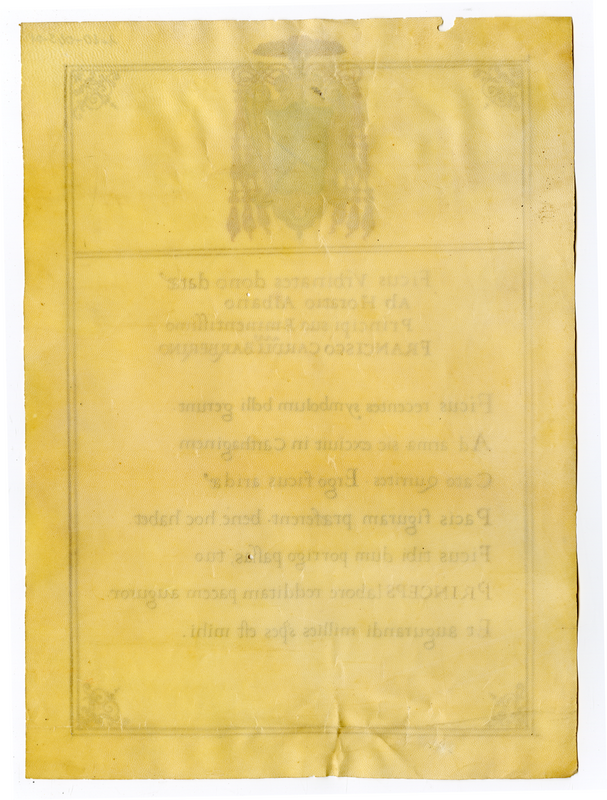 Ficus Vrbinates dono datæ
Ab Horatio Albano
Principi suo Eminentissimo
FRANCISCO CARD. BARBERINO
Ficus recentes symbolum belli gerunt
Ad arma sic exciuit in Carthaginem
Cato Quirites Ergo ficus aridæ
Pacis figuram præferent. bene hoc habet
Ficus tibi dum porrigo passas tuo
PRINCEPS labore redditam pacem auguror.
Et augurandi millies spes est mihi.